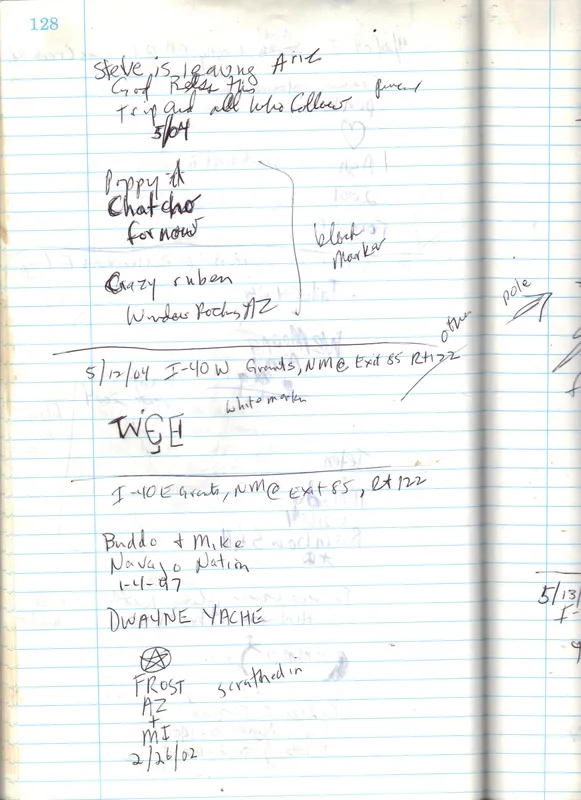 128
Steve is leaving Ariz
God Bless this
Trip and all who follow
pencil
5/04
Poppy
Chatcho
for now
black
marker
Crazy ruben
Window Rock, AZ
other pole
5/12/04 I-40 W Grants, NM @ Exit 85 Rt 122
white marker
I-40 E Grants, NM @ Exit 85, Rt 122
Buddo + Mike
Navajo Nation
1-4-97
DWAYNE YACHE
FROST
scrathed in
AZ
+
MI
2/26/02
5/13/
I-